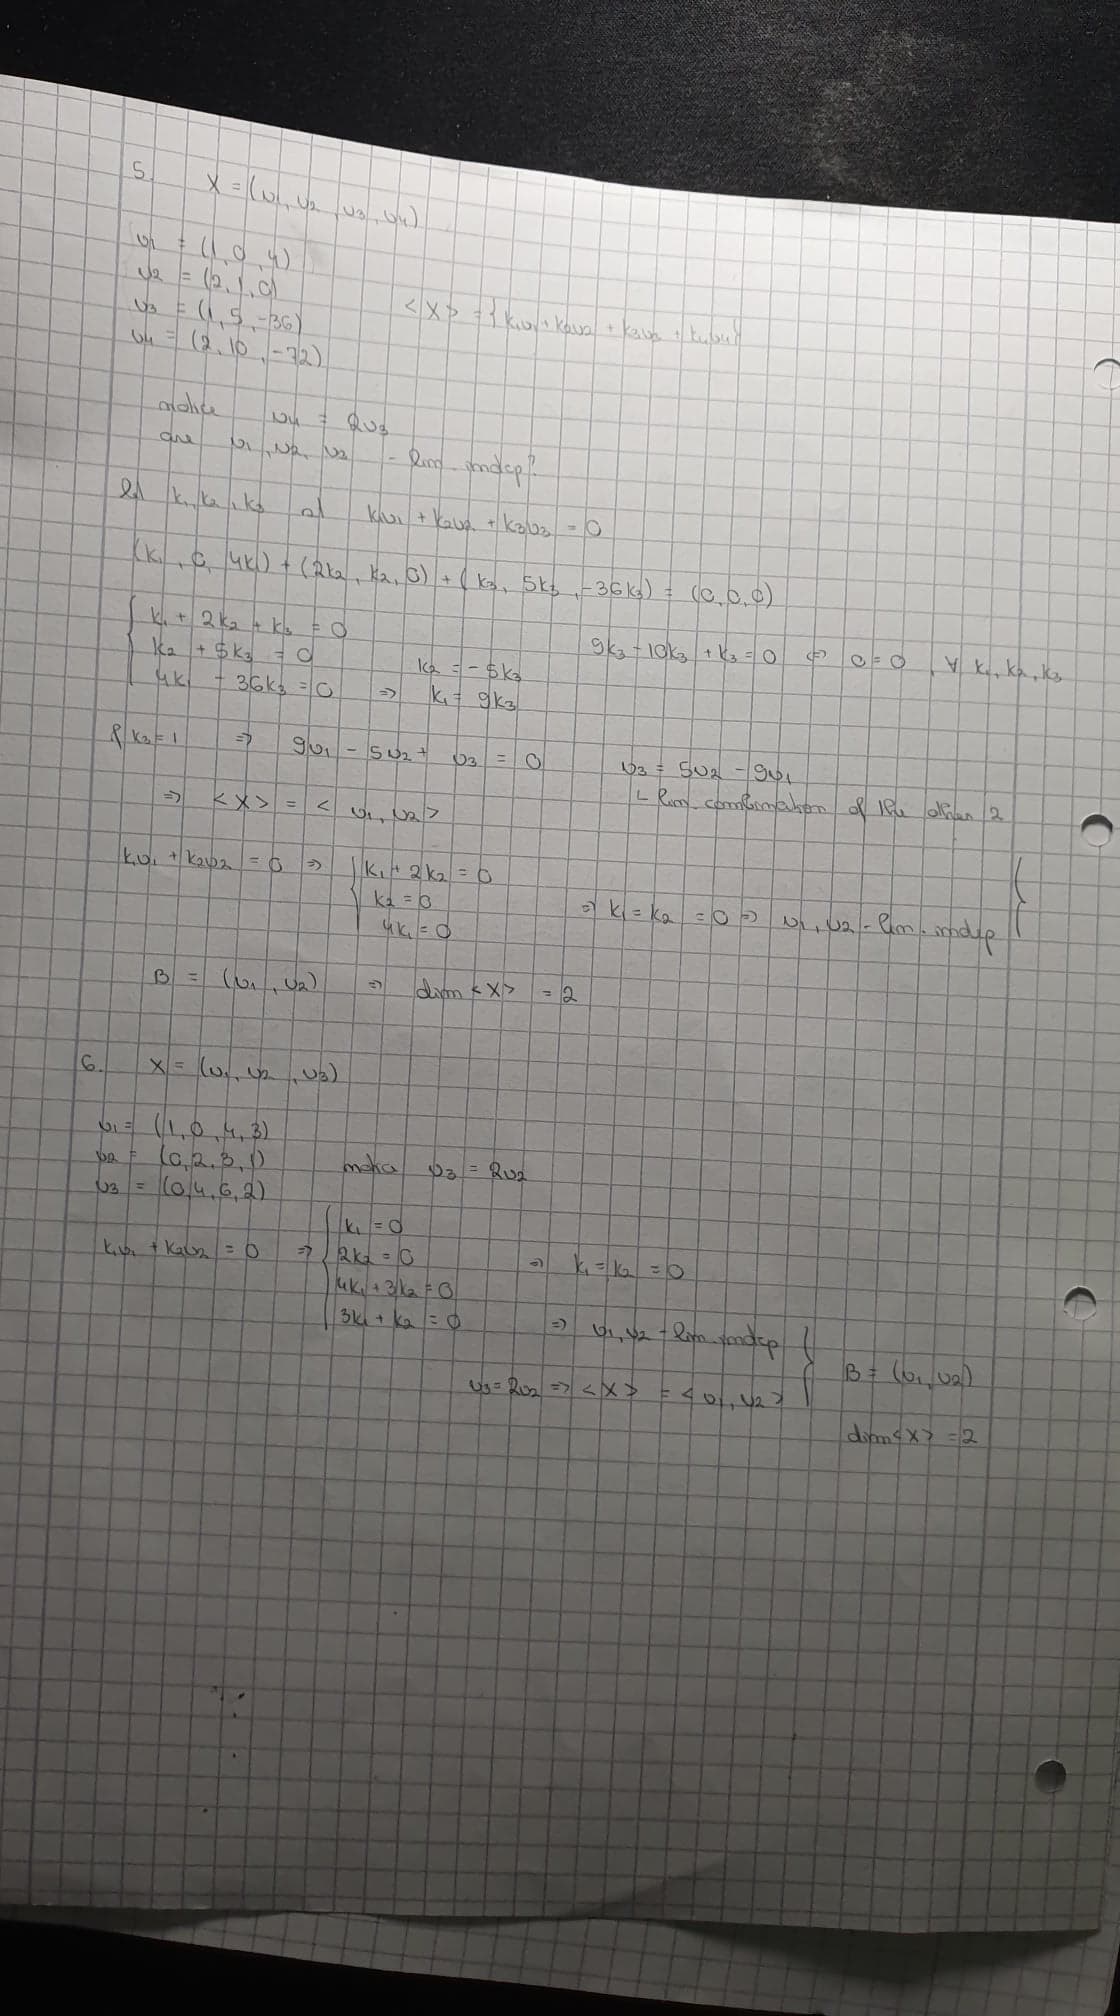 5. X = (v1, v2, v3, v4)
v1 = (1, 0, 4)
v2 = (2, 1, 0)
v3 = (1, 5, -36)
v4 = (2, 10, -72)
<X> = {k1v1 + k2v2 + k3v3 + k4v4}
notice v4 = 2v3
are v1, v2, v3 - lin. indep?
let k1, k2, k3 st k1v1 + k2v2 + k3v3 = 0
(k1, 0, 4k1) + (2k2, k2, 0) + (k3, 5k3, -36k3) = (0, 0, 0)
k1 + 2k2 + k3 = 0
k2 + 5k3 = 0
4k1 - 36k3 = 0 => k2 = -5k3
k1 = 9k3
9k3 - 10k3 + k3 = 0 <=> 0 = 0, ∀ k1, k2, k3
if k3 = 1 => 9v1 - 5v2 + v3 = 0
v3 = 5v2 - 9v1
lin. combination of the other 2
=> <X> = <v1, v2>
k1v1 + k2v2 = 0 => { k1 + 2k2 = 0
k2 = 0
4k1 = 0
=> k1 = k2 = 0 => v1, v2 - lin. indep
B = (v1, v2) => dim <X> = 2
6. X = (v1, v2, v3)
v1 = (1, 0, 4, 3)
v2 = (0, 2, 3, 1)
v3 = (0, 4, 6, 2)
v3 = 2v2
k1v1 + k2v2 = 0 => { k1 = 0
2k2 = 0
4k1 + 3k2 = 0
3k1 + k2 = 0
=> k1 = k2 = 0
=> v1, v2 - lin. indep
v3 = 2v2 => <X> = <v1, v2>
B = (v1, v2)
dim <X> = 2